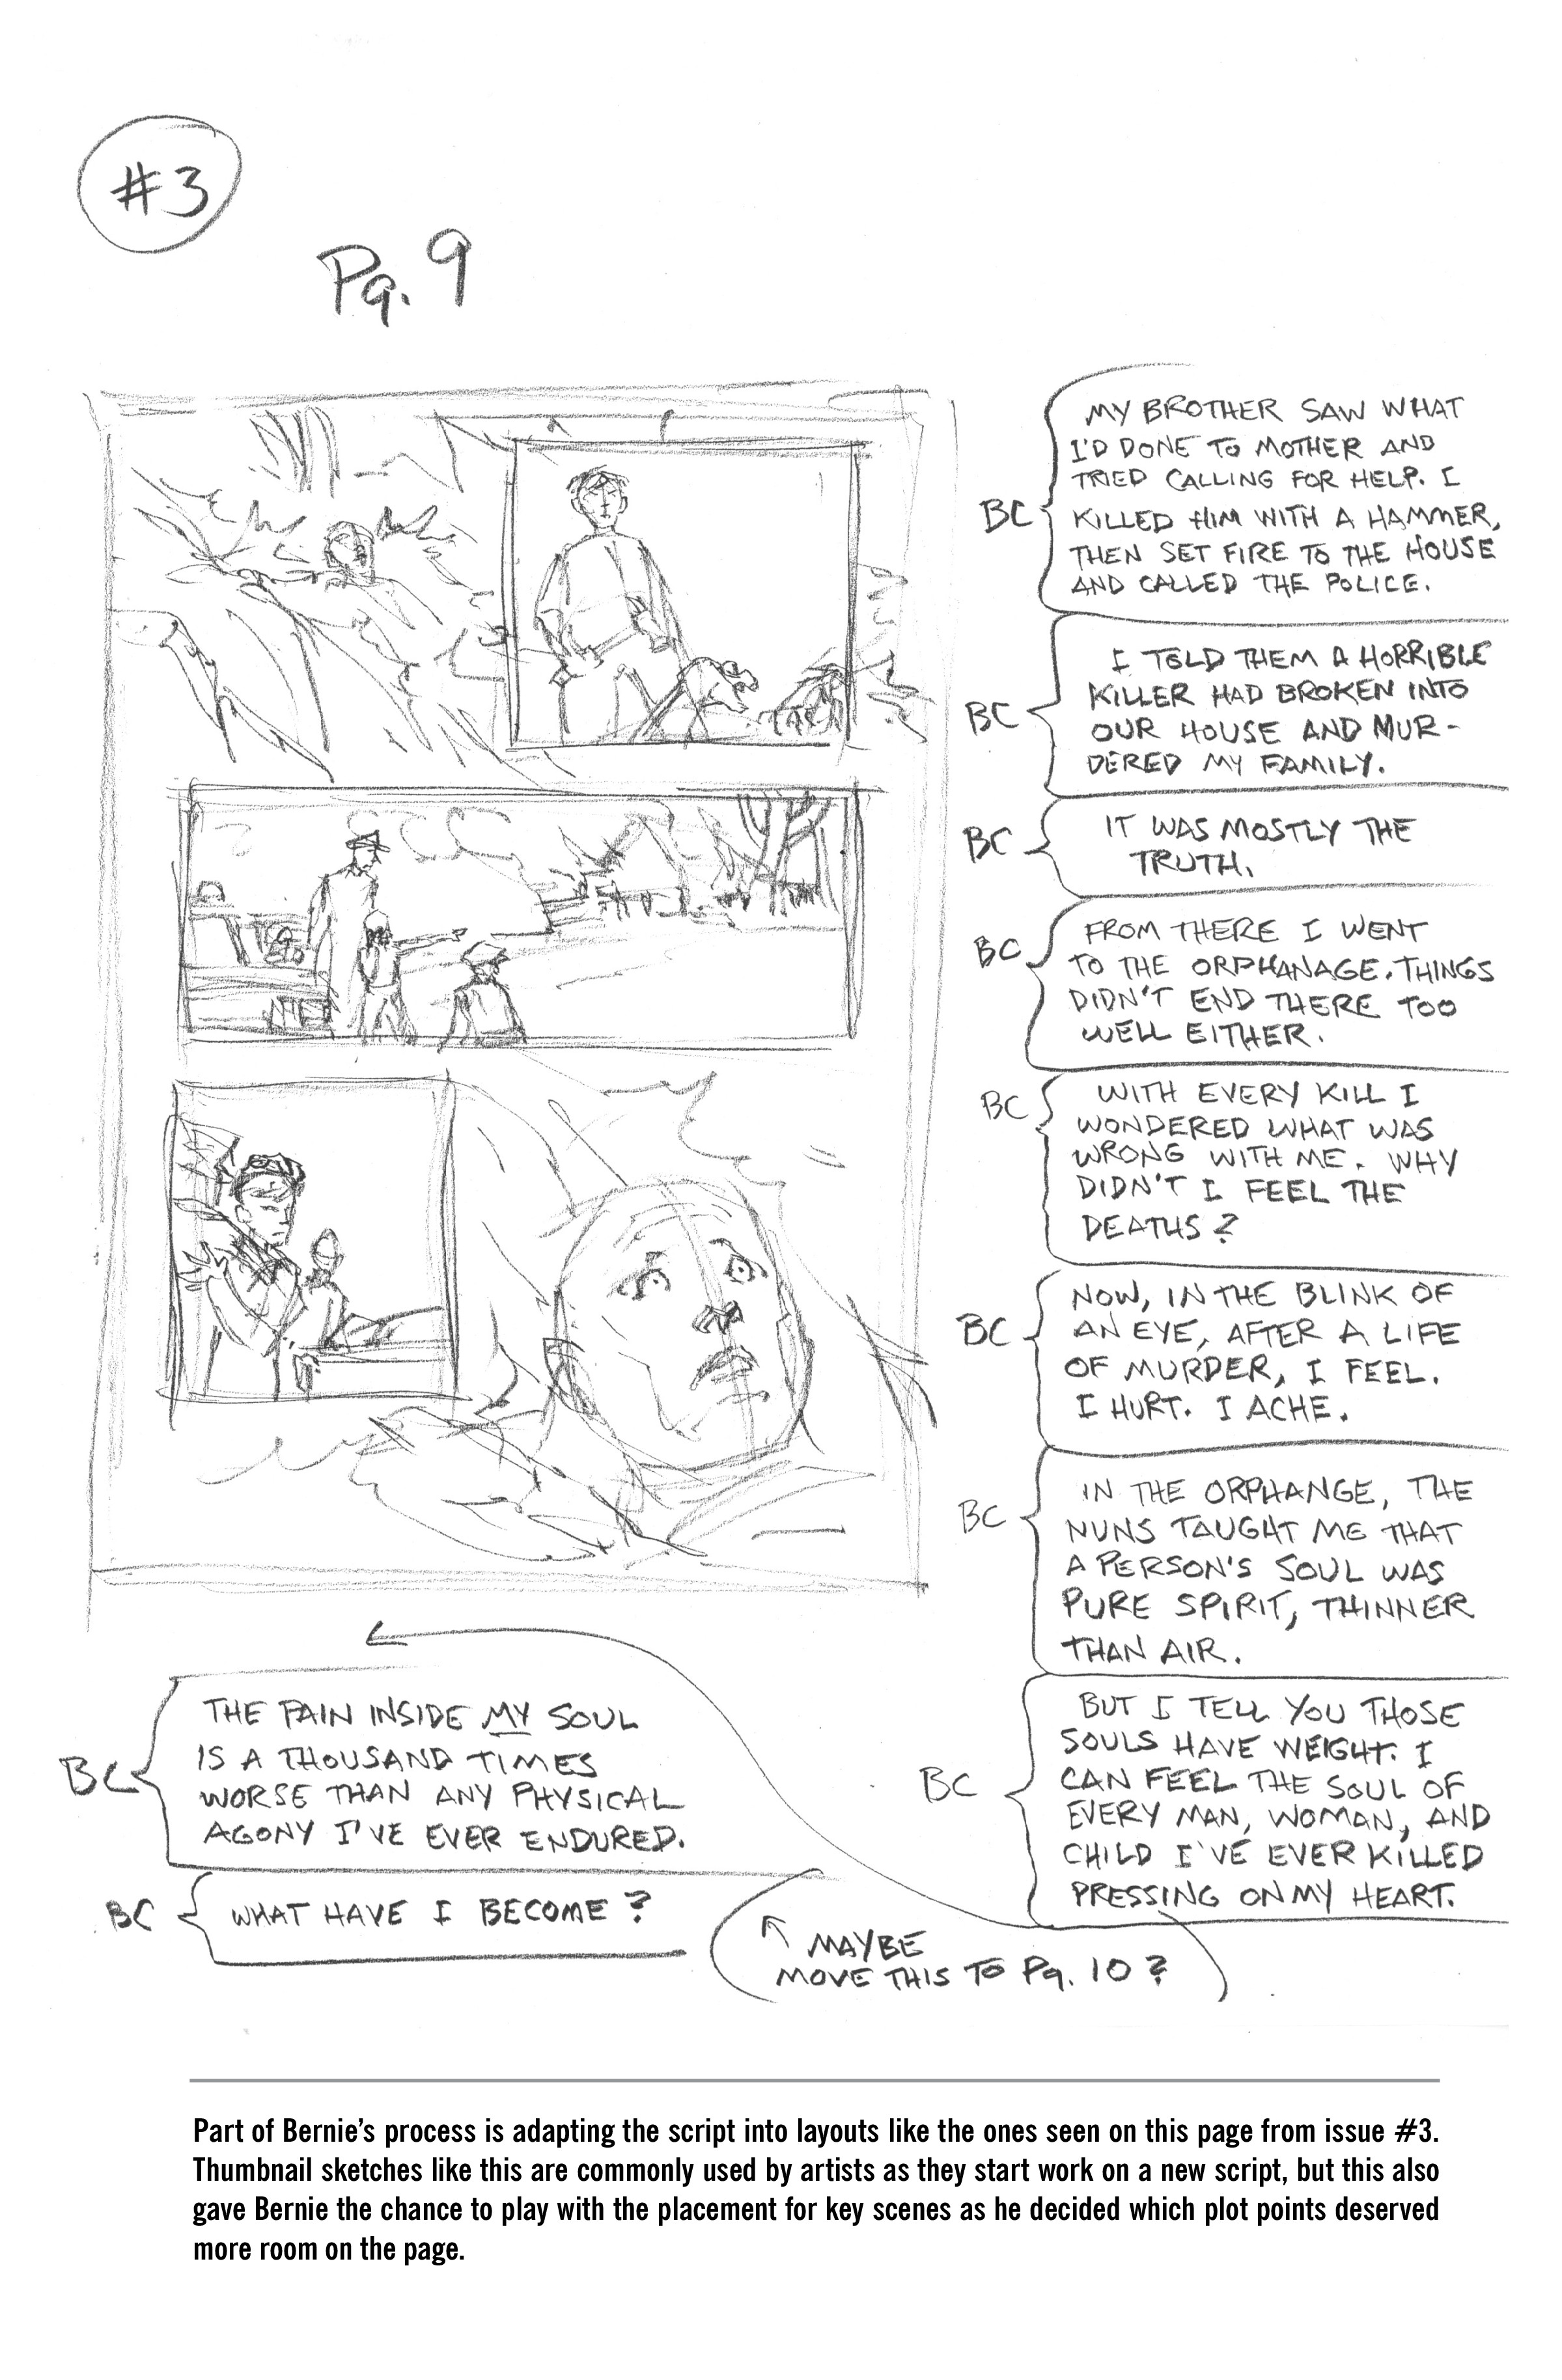 #3
Pg. 9
MY BROTHER SAW WHAT
I'D DONE TO MOTHER AND
TRIED CALLING FOR HELP. I
BC
KILLED HIM WITH A HAMMER,
THEN SET FIRE TO THE HOUSE
AND CALLED THE POLICE.
I TOLD THEM A HORRIBLE
KILLER HAD BROKEN INTO
BC
OUR HOUSE AND MUR-
DERED MY FAMILY.
BC
IT WAS MOSTLY THE
TRUTH.
BC
FROM THERE I WENT
TO THE ORPHANAGE. THINGS
DIDN'T END THERE TOO
WELL EITHER.
BC
WITH EVERY KILL I
WONDERED WHAT WAS
WRONG WITH ME. WHY
DIDN'T I FEEL THE
DEATHS?
BC
NOW, IN THE BLINK OF
AN EYE, AFTER A LIFE
OF MURDER, I FEEL.
I HURT. I ACHE.
BC
IN THE ORPHANGE, THE
NUNS TAUGHT ME THAT
A PERSON'S SOUL WAS
PURE SPIRIT, THINNER
THAN AIR.
BC
BUT I TELL YOU THOSE
SOULS HAVE WEIGHT. I
CAN FEEL THE SOUL OF
EVERY MAN, WOMAN, AND
CHILD I'VE EVER KILLED
PRESSING ON MY HEART.
BC
THE PAIN INSIDE MY SOUL
IS A THOUSAND TIMES
WORSE THAN ANY PHYSICAL
AGONY I'VE EVER ENDURED.
BC
WHAT HAVE I BECOME?
MAYBE
MOVE THIS TO Pg. 10?
Part of Bernie's process is adapting the script into layouts like the ones seen on this page from issue #3.
Thumbnail sketches like this are commonly used by artists as they start work on a new script, but this also
gave Bernie the chance to play with the placement for key scenes as he decided which plot points deserved
more room on the page.